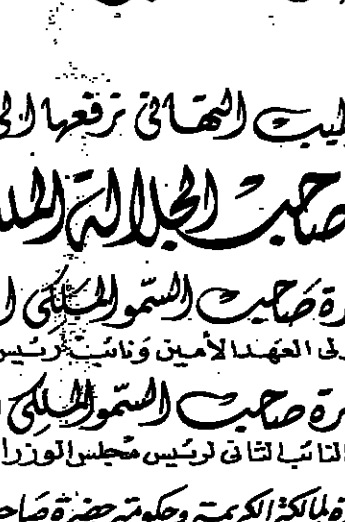 التهاني نرفعها إلى
صاحب الجلالة
صاحب السمو الملكي
ولى العهد الأمين ونائب رئيس
صاحب السمو الملكي
النائب الثاني لرئيس مجلس الوزرا
المالكة الكريمة وحكومة حضرة صاحب